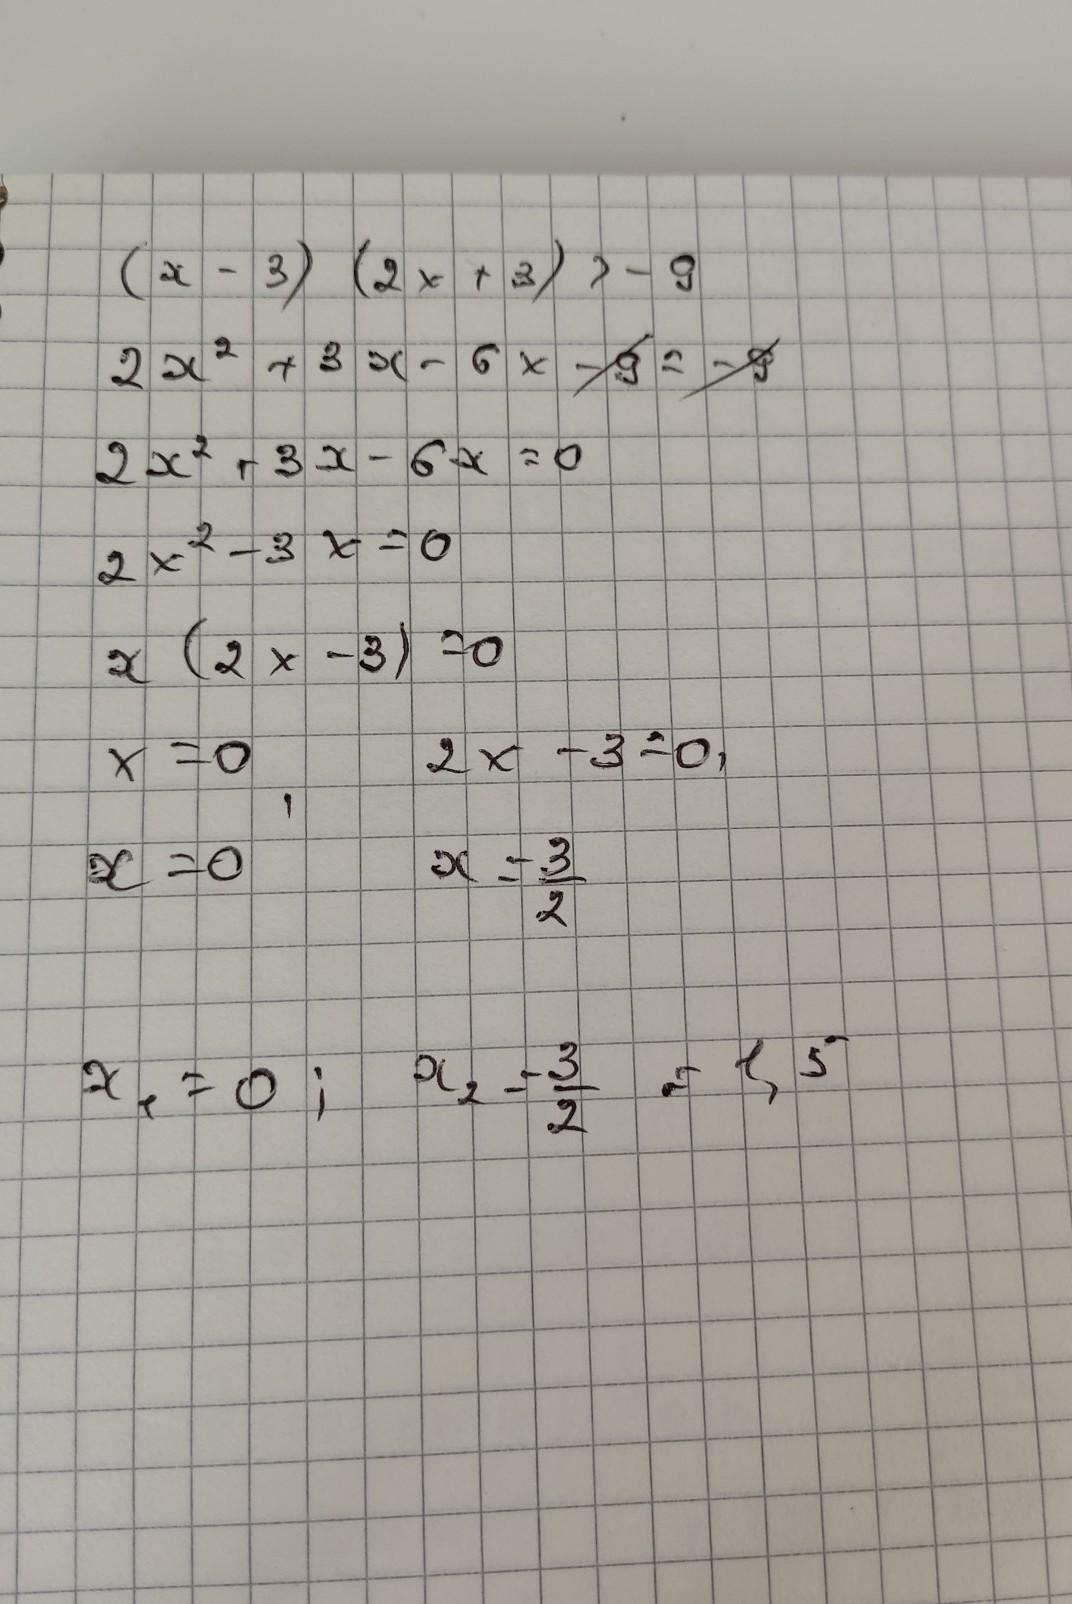 (x - 3) (2x + 3) > - 9
2x² + 3x - 6x - 9 = - 9
2x² + 3x - 6x = 0
2x² - 3x = 0
x (2x - 3) = 0
x = 0, 2x - 3 = 0,
x = 0 x = 3/2
x₁ = 0 ; x₂ = 3/2 = 1,5